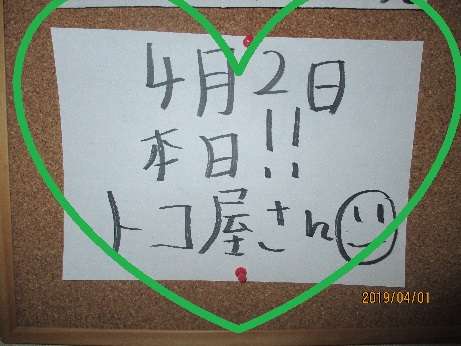 4月2日
本日!!
トコ屋さん
2019/04/01